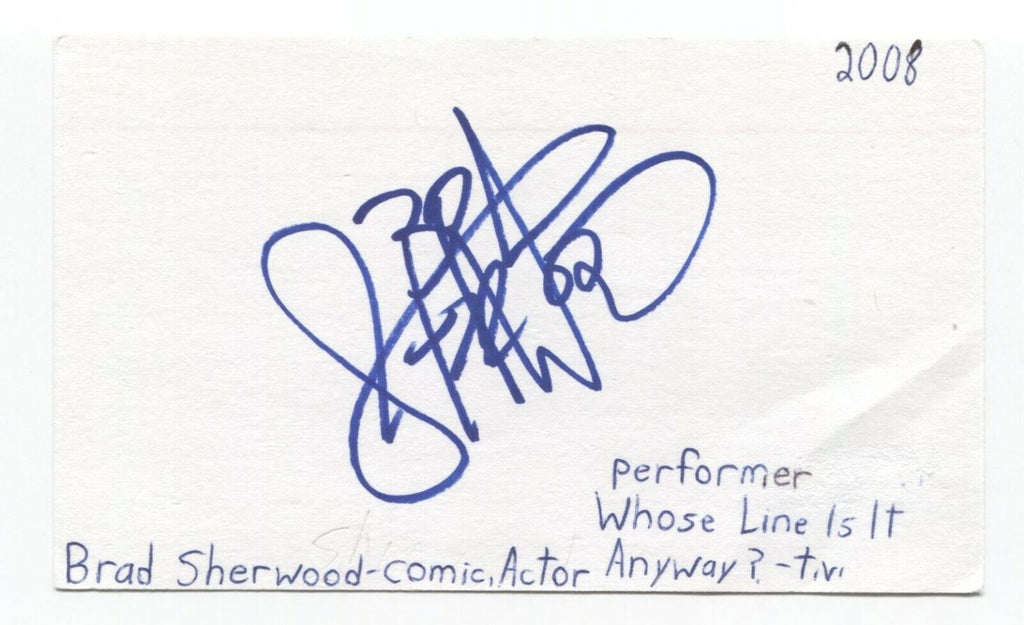 2008
performer
Whose Line Is It
Brad Sherwood-comic, Actor Anyway? -t.v.